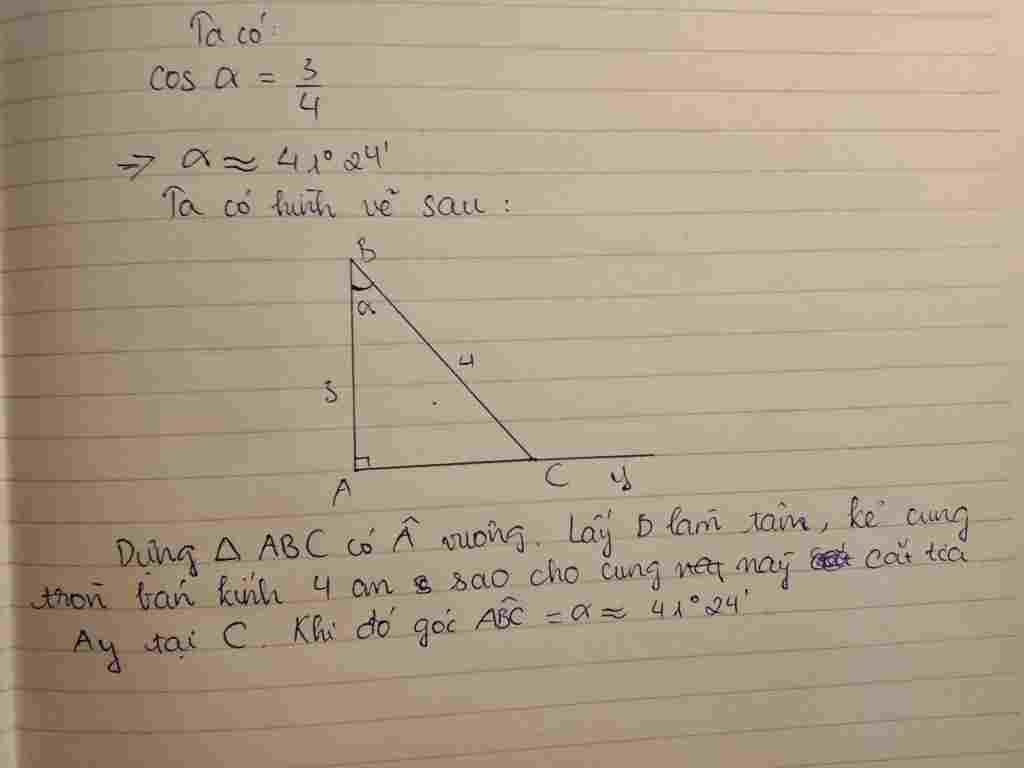 Ta có:
cos α = 3/4
=> α ≈ 41° 24'
Ta có hình vẽ sau:
B
α
4
3
A
C y
Dựng Δ ABC có Â vuông. Lấy B làm tâm, kẻ cung
tròn bán kính 4 cm sao cho cung này cắt tia
Ay tại C. Khi đó góc ABC = α ≈ 41° 24'